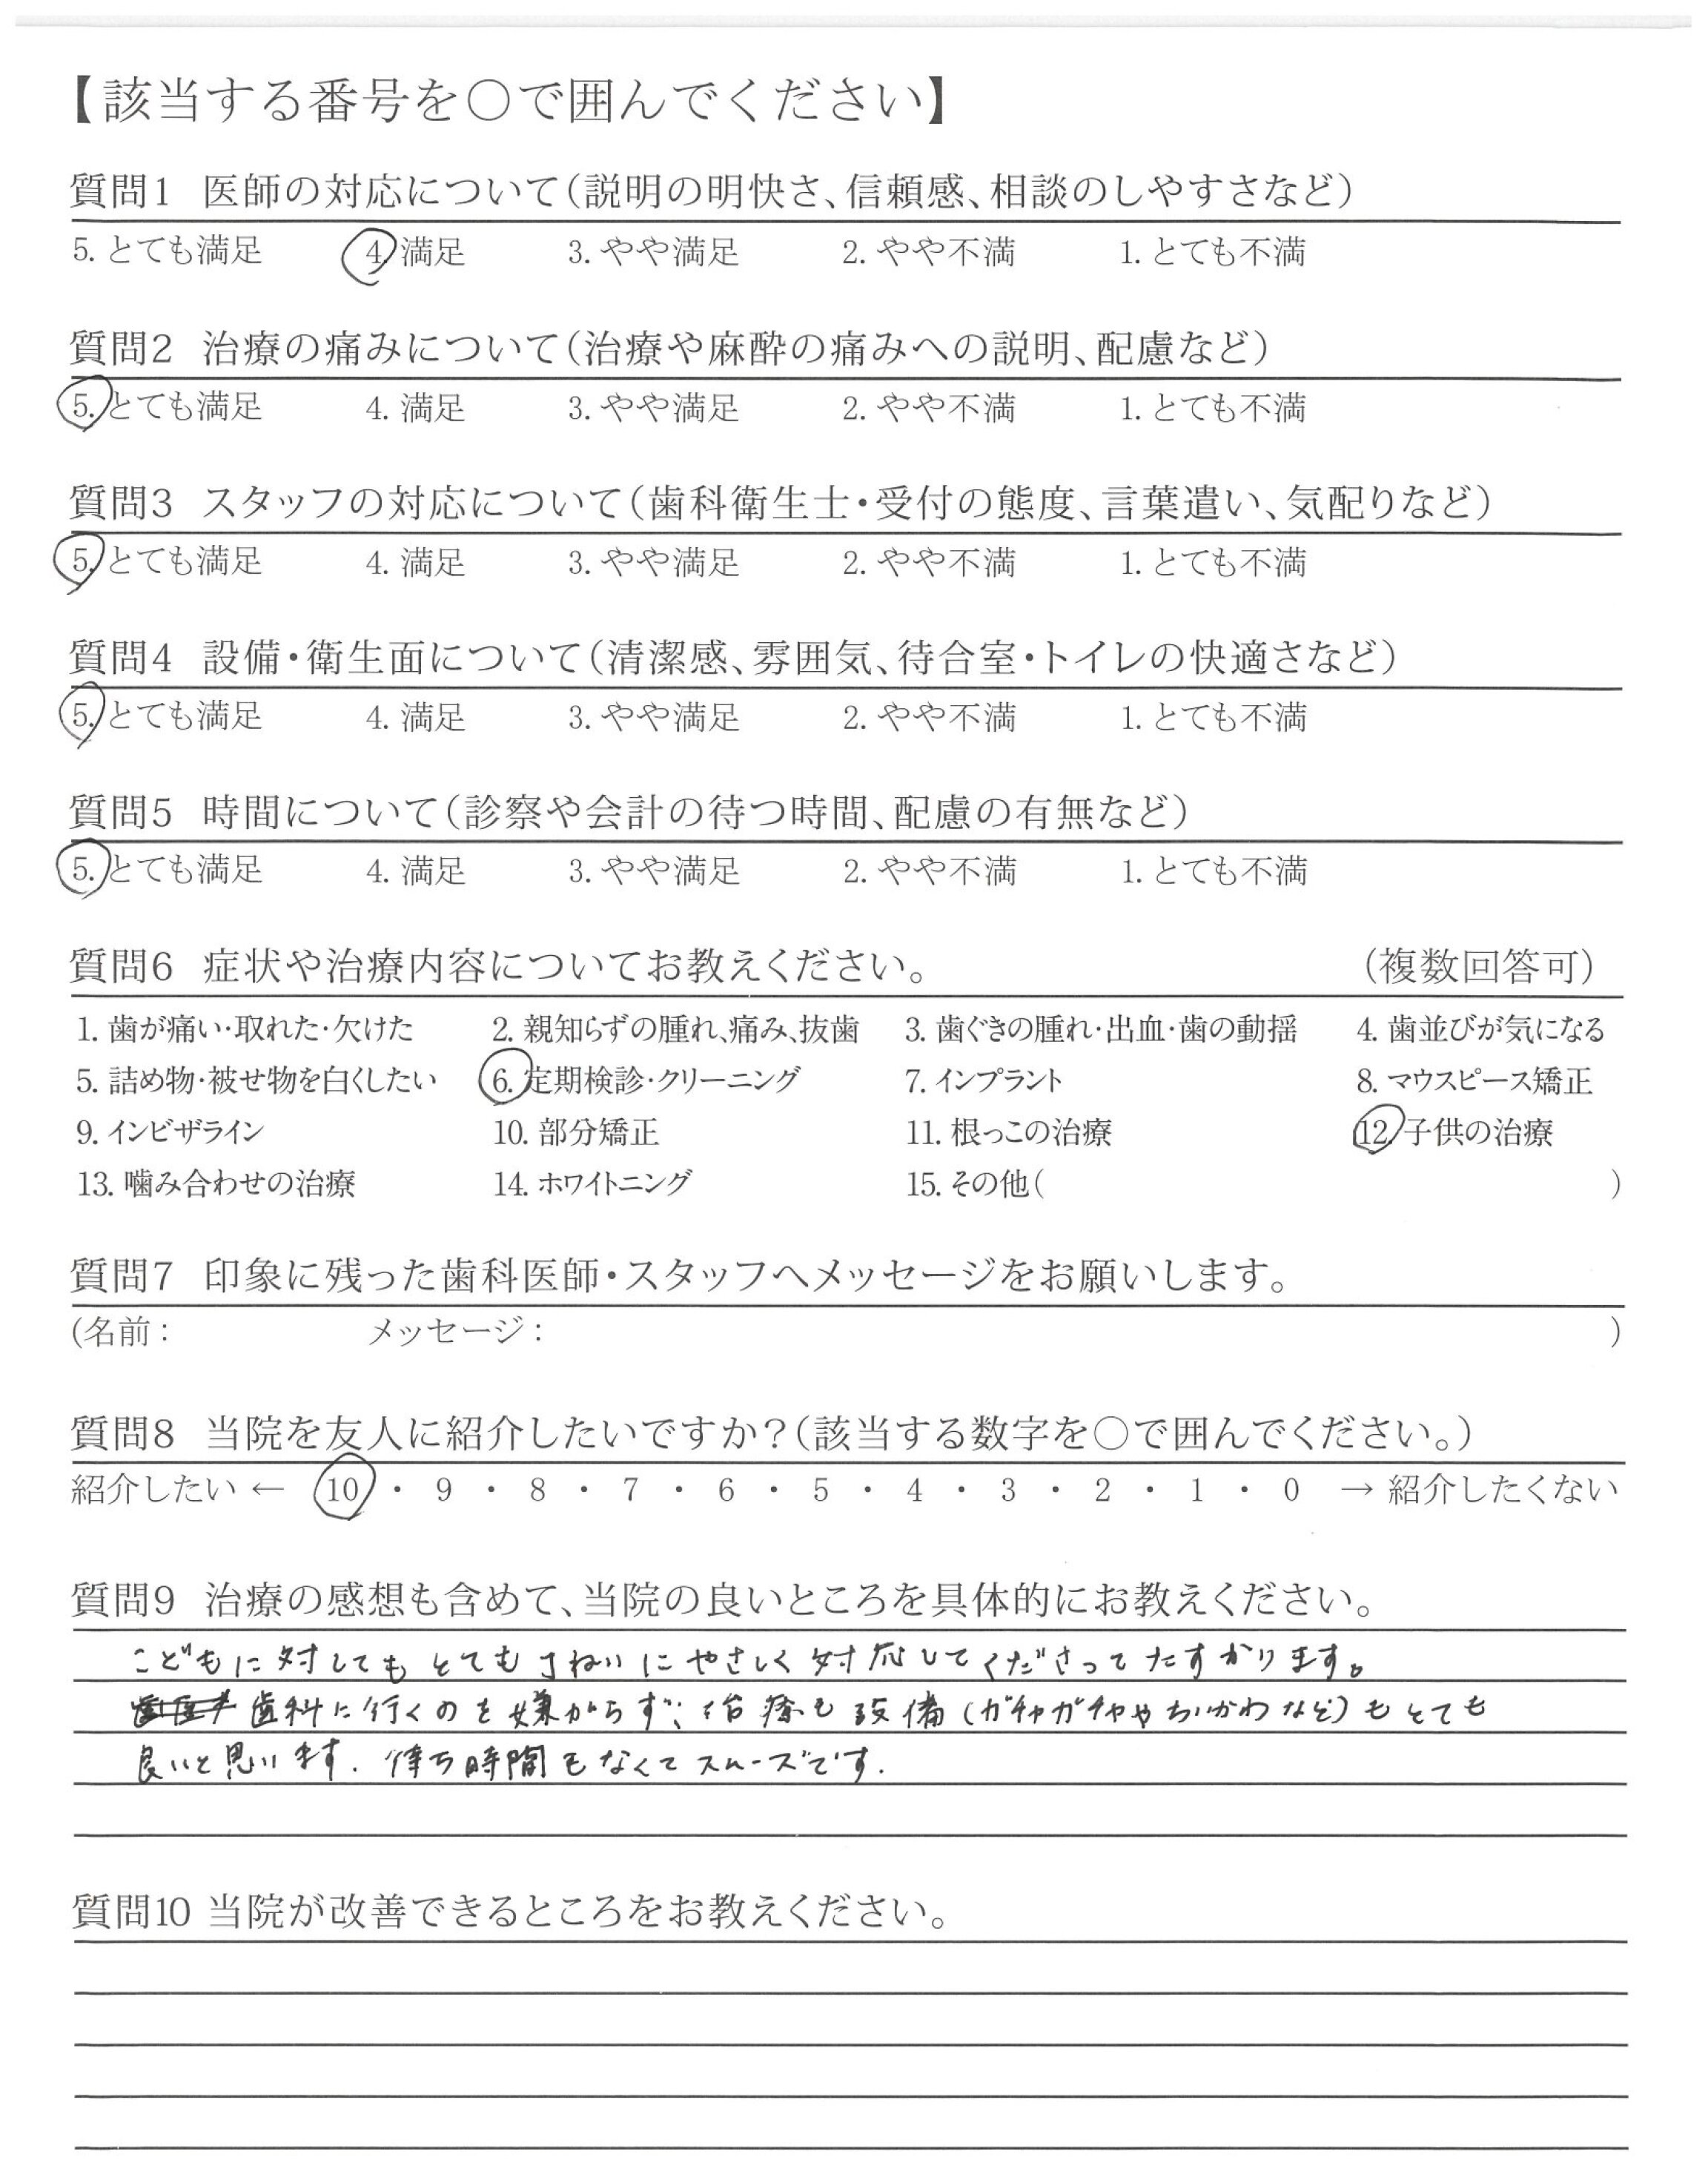 【該当する番号を○で囲んでください】
質問1 医師の対応について(説明の明快さ、信頼感、相談のしやすさなど)
5. とても満足 4. 満足 3. やや満足 2. やや不満 1. とても不満
質問2 治療の痛みについて(治療や麻酔の痛みへの説明、配慮など)
5. とても満足 4. 満足 3. やや満足 2. やや不満 1. とても不満
質問3 スタッフの対応について(歯科衛生士・受付の態度、言葉遣い、気配りなど)
5. とても満足 4. 満足 3. やや満足 2. やや不満 1. とても不満
質問4 設備・衛生面について(清潔感、雰囲気、待合室・トイレの快適さなど)
5. とても満足 4. 満足 3. やや満足 2. やや不満 1. とても不満
質問5 時間について(診察や会計の待つ時間、配慮の有無など)
5. とても満足 4. 満足 3. やや満足 2. やや不満 1. とても不満
質問6 症状や治療内容についてお教えください。 (複数回答可)
1. 歯が痛い・取れた・欠けた 2. 親知らずの腫れ、痛み、抜歯 3. 歯ぐきの腫れ・出血・歯の動揺 4. 歯並びが気になる
5. 詰め物・被せ物を白くしたい 6. 定期検診・クリーニング 7. インプラント 8. マウスピース矯正
9. インビザライン 10. 部分矯正 11. 根っこの治療 12. 子供の治療
13. 噛み合わせの治療 14. ホワイトニング 15. その他( )
質問7 印象に残った歯科医師・スタッフへメッセージをお願いします。
(名前: メッセージ: )
質問8 当院を友人に紹介したいですか?(該当する数字を○で囲んでください。)
紹介したい ← 10 ・ 9 ・ 8 ・ 7 ・ 6 ・ 5 ・ 4 ・ 3 ・ 2 ・ 1 ・ 0 → 紹介したくない
質問9 治療の感想も含めて、当院の良いところを具体的にお教えください。
こどもに対してもとてもていねいにやさしく対応してくださってたすかります。
歯科に行くのを嫌がらず、治療も設備(ガチャガチャやちいかわなど)もとても
良いと思います. 待ち時間もなくてスムーズです.
質問10 当院が改善できるところをお教えください。